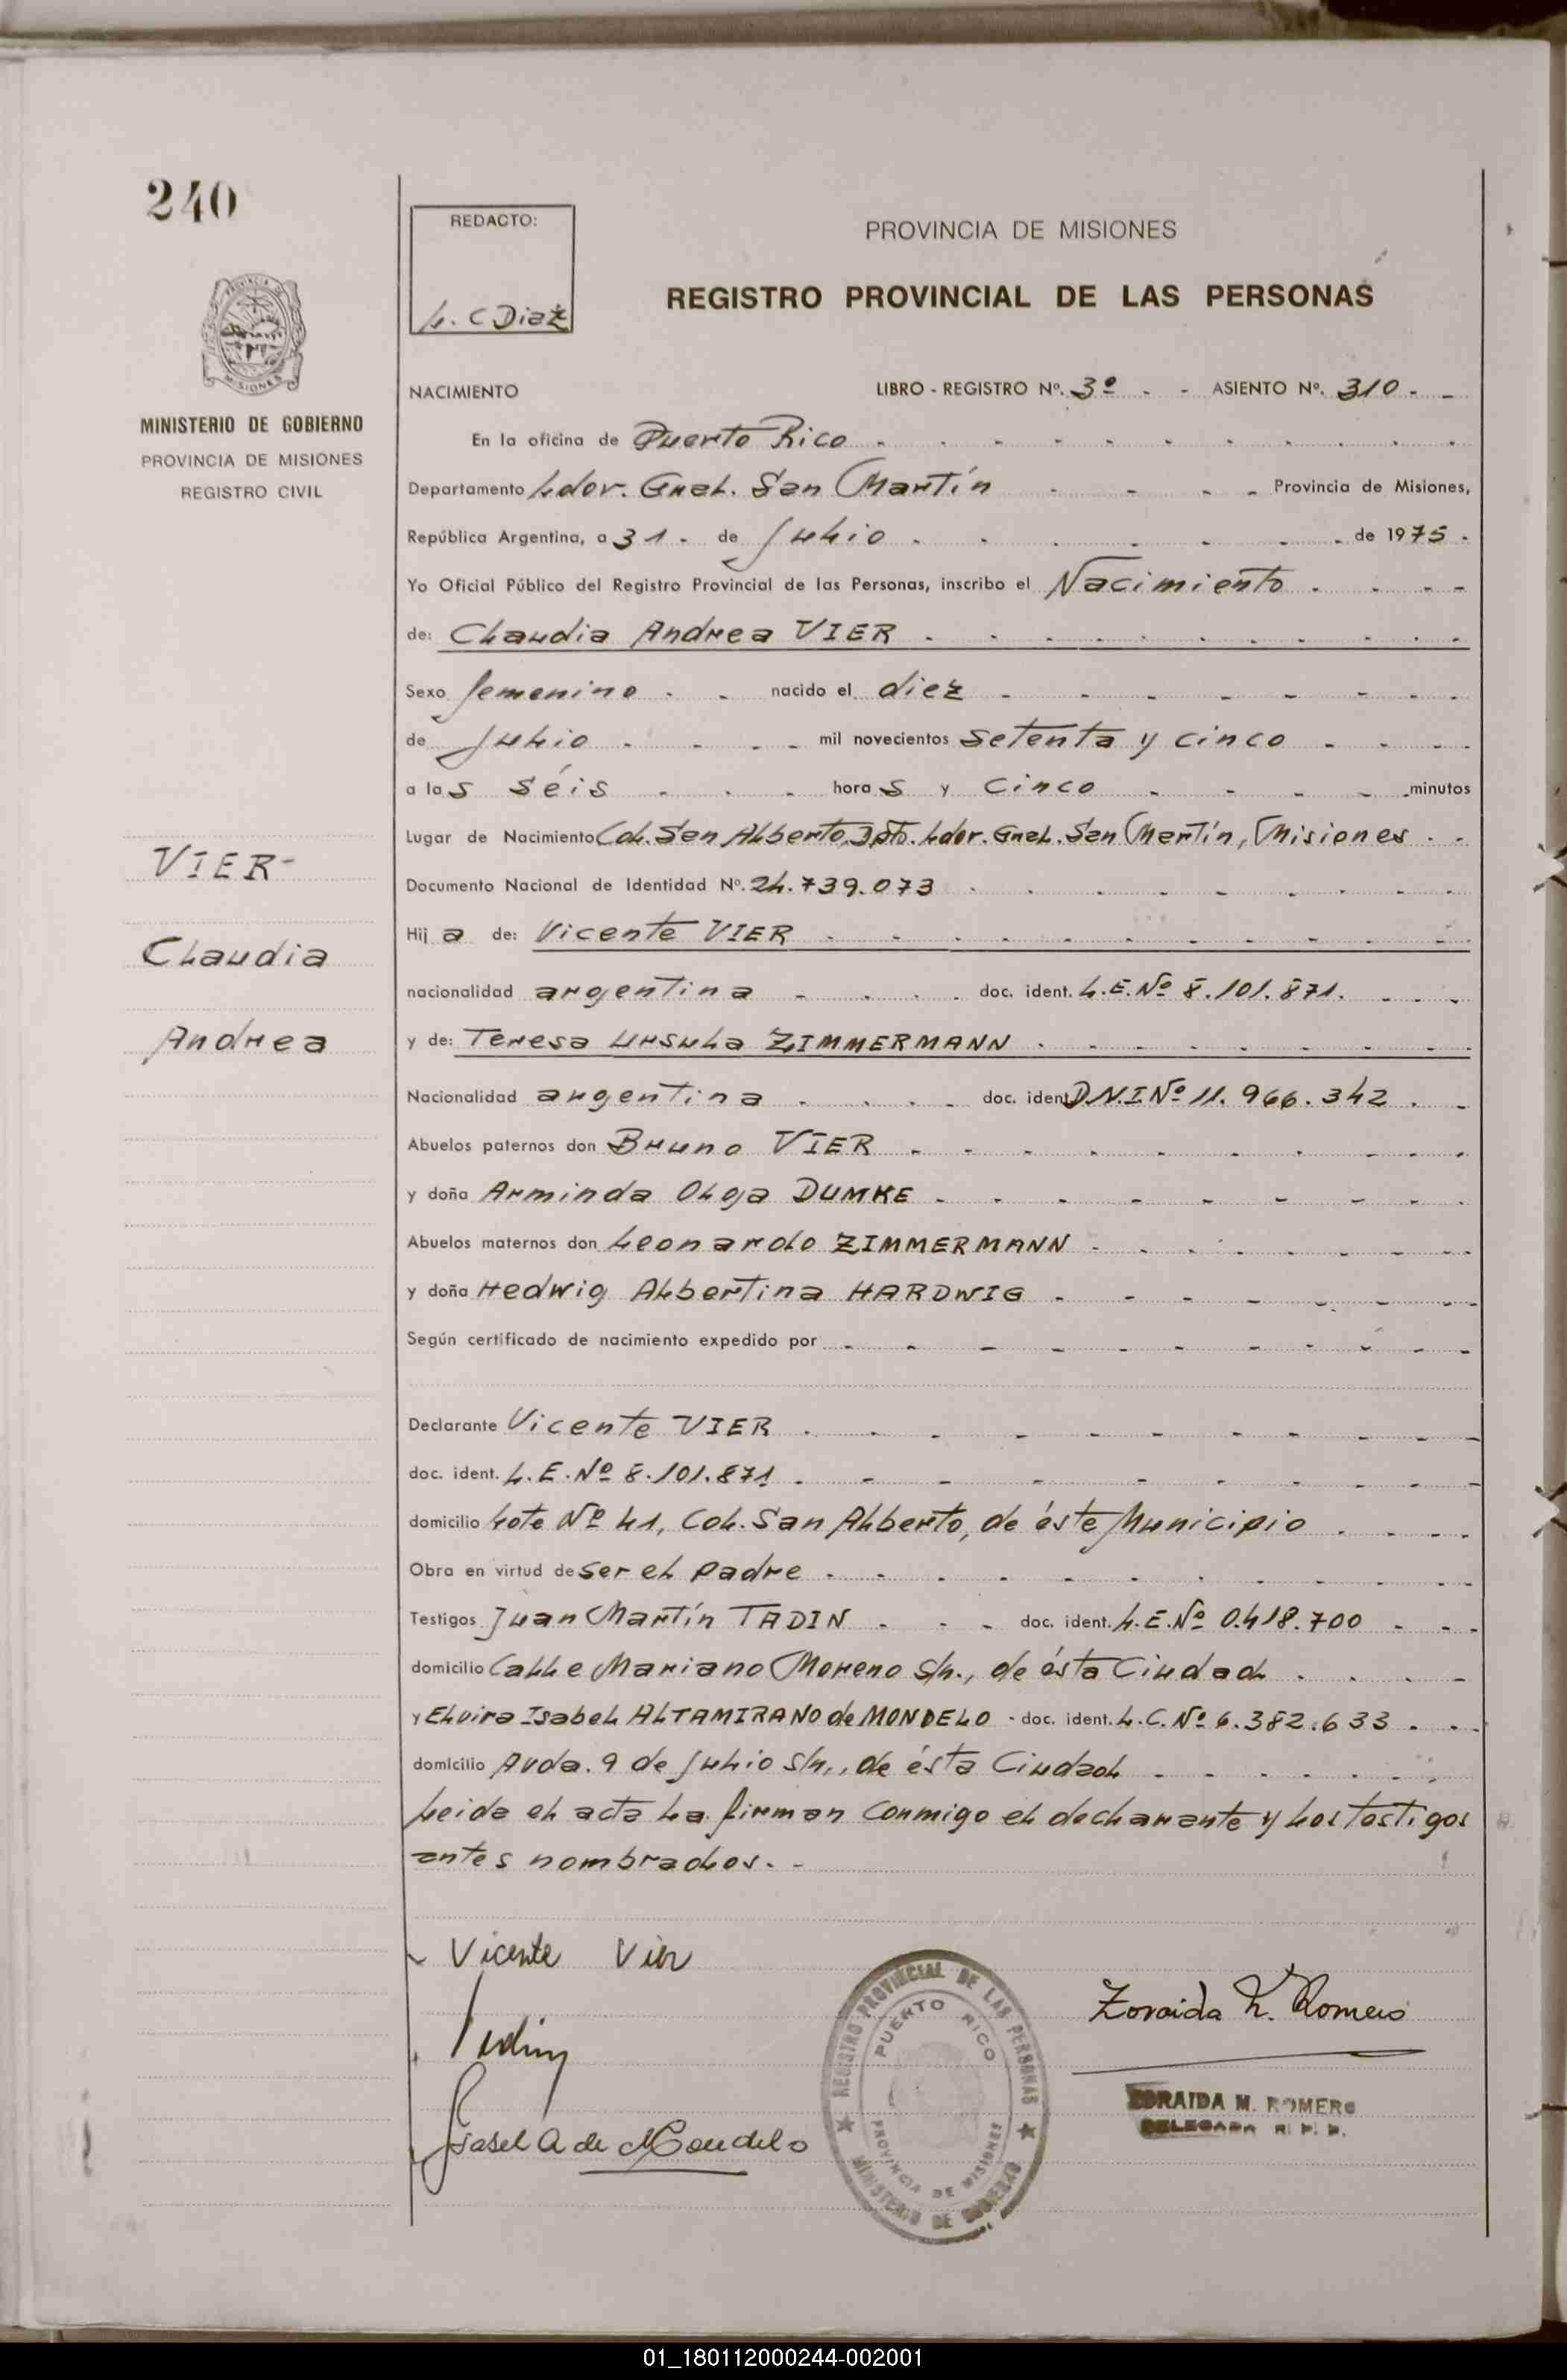 240
REDACTO:
L. C Diaz
PROVINCIA DE MISIONES
REGISTRO PROVINCIAL DE LAS PERSONAS
PROVINCIA DE
MISIONES
MINISTERIO DE GOBIERNO
PROVINCIA DE MISIONES
REGISTRO CIVIL
NACIMIENTO LIBRO - REGISTRO Nº. 3º - - ASIENTO Nº. 310 - -
En la oficina de Puerto Rico
Departamento Ldor. Gral. San Martín Provincia de Misiones,
República Argentina, a 31 de Julio de 1975
Yo Oficial Público del Registro Provincial de las Personas, inscribo el Nacimiento
de: Claudia Andrea VIER
Sexo femenino nacido el diez
de Julio mil novecientos setenta y cinco
a las séis horas y cinco minutos
Lugar de Nacimiento Col. San Alberto, Dpto. Ldor. Gral. San Martín, Misiones
Documento Nacional de Identidad Nº. 24.739.073
Hija de: Vicente VIER
nacionalidad argentina doc. ident. L.E. Nº 8.101.871.
y de: Teresa Ursula ZIMMERMANN
Nacionalidad argentina doc. ident D.N.I Nº 11.966.342
Abuelos paternos don Bruno VIER
y doña Arminda Olga DUMKE
Abuelos maternos don Leonardo ZIMMERMANN
y doña Hedwig Albertina HARDWIG
Según certificado de nacimiento expedido por
Declarante Vicente VIER
doc. ident. L.E. Nº 8.101.871
domicilio Lote Nº 41, Col. San Alberto, de éste Municipio
Obra en virtud de ser el padre
Testigos Juan Martín TADIN doc. ident. L.E. Nº 0.418.700
domicilio Calle Mariano Moreno s/n., de ésta Ciudad
y Elvira Isabel ALTAMIRANO de MONDELO - doc. ident. L.C. Nº 6.382.633
domicilio Avda. 9 de Julio s/n., de ésta Ciudad
Leida el acta la firman conmigo el declarante y los testigos
antes nombrados. -
VIER
Claudia
Andrea
Vicente Vier
Isabel A de Mondelo
REGISTRO PROVINCIAL DE LAS PERSONAS
PUERTO RICO
PROVINCIA DE MISIONES
MINISTERIO DE GOBIERNO
Zoraida M. Romero
ZORAIDA M. ROMERO
DELEGADA R. P. P.
01_180112000244-002001